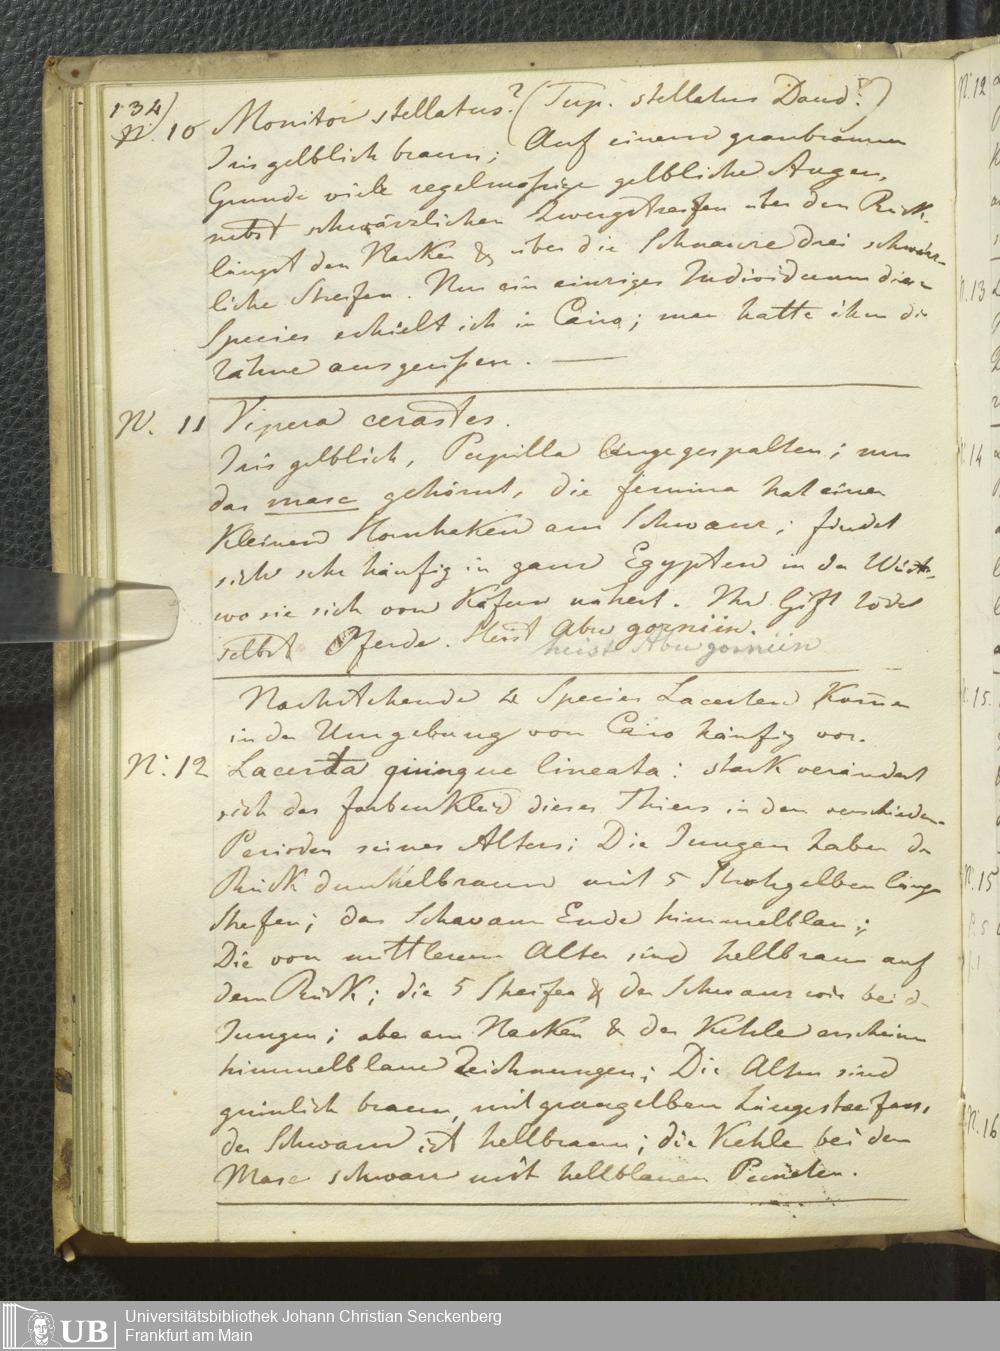 134)
N. 10 Monitor stellatus? (Tup. stellatus Daud?)
Iris gelblich braun; Auf einem graubraunen
Grunde viele regelmäßige gelbliche Augen,
nebst schwärzlichen Zwergstreifen über den Rück.
längst den Nacken & über die Schnauze drei schwärz-
liche Streifen. Nur ein einziges Individuum dieser
Species erhielt ich in Cairo; man hatte ihm die
Zähne ausgerißen. —
N. 11 Vipera cerastes.
Iris gelblich, Pupilla länge gespalten; nur
das masc gehörnt, die femina hat einen
kleinen Hornhaken am Schwanz; findet
sich sehr häufig in ganz Egypten in der Wüste,
wo sie sich von Käfern nähert. Ihr Gift tödet
selbst Pferde. Heist Abu gorniin.
heist Abu gorniin
Nachstehende 4 Species Lacerten kom̄en
in der Umgebung von Cairo häufig vor.
N. 12 Lacerta quinque lineata: stark verändert
sich das Farbenkleid dieses Thiers in den verschieden-
Perioden seines Alters; Die Jungen haben den
Rück dunkelbraun mit 5 Strohgelben längs
Streifen; das Schwanz Ende himmelblau;
Die von mittlerem Alter sind hellbraun auf
dem Rück; die 5 Streifen & der Schwanz wie bei d.
Jungen; aber am Nacken & der Kehle erscheinen
himmelblaue Zeichnungen; Die Alten sind
grünlich braun, mit graugelben Längestreifens,
der Schwanz ist hellbraun; die Kehle bei dem
Masc schwarz mit hellblauen Puncten.
N. 12
N. 13
N. 14
N. 15.
N. 15
N. 16
UB
Universitätsbibliothek Johann Christian Senckenberg
Frankfurt am Main